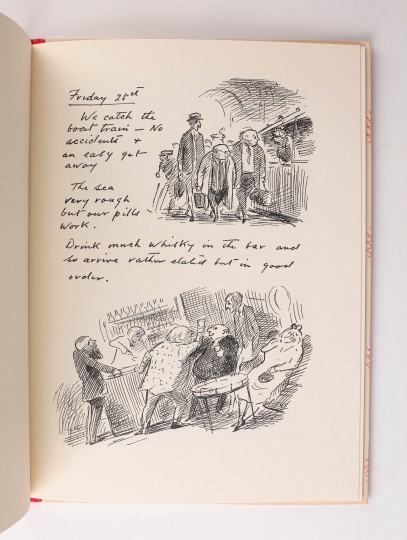 Friday 25th
We catch the
boat train — No
accidents +
an easy get
away
The sea
very rough
but our pills
work.
Drink much whisky in the bar and
so arrive rather elated but in good
order.